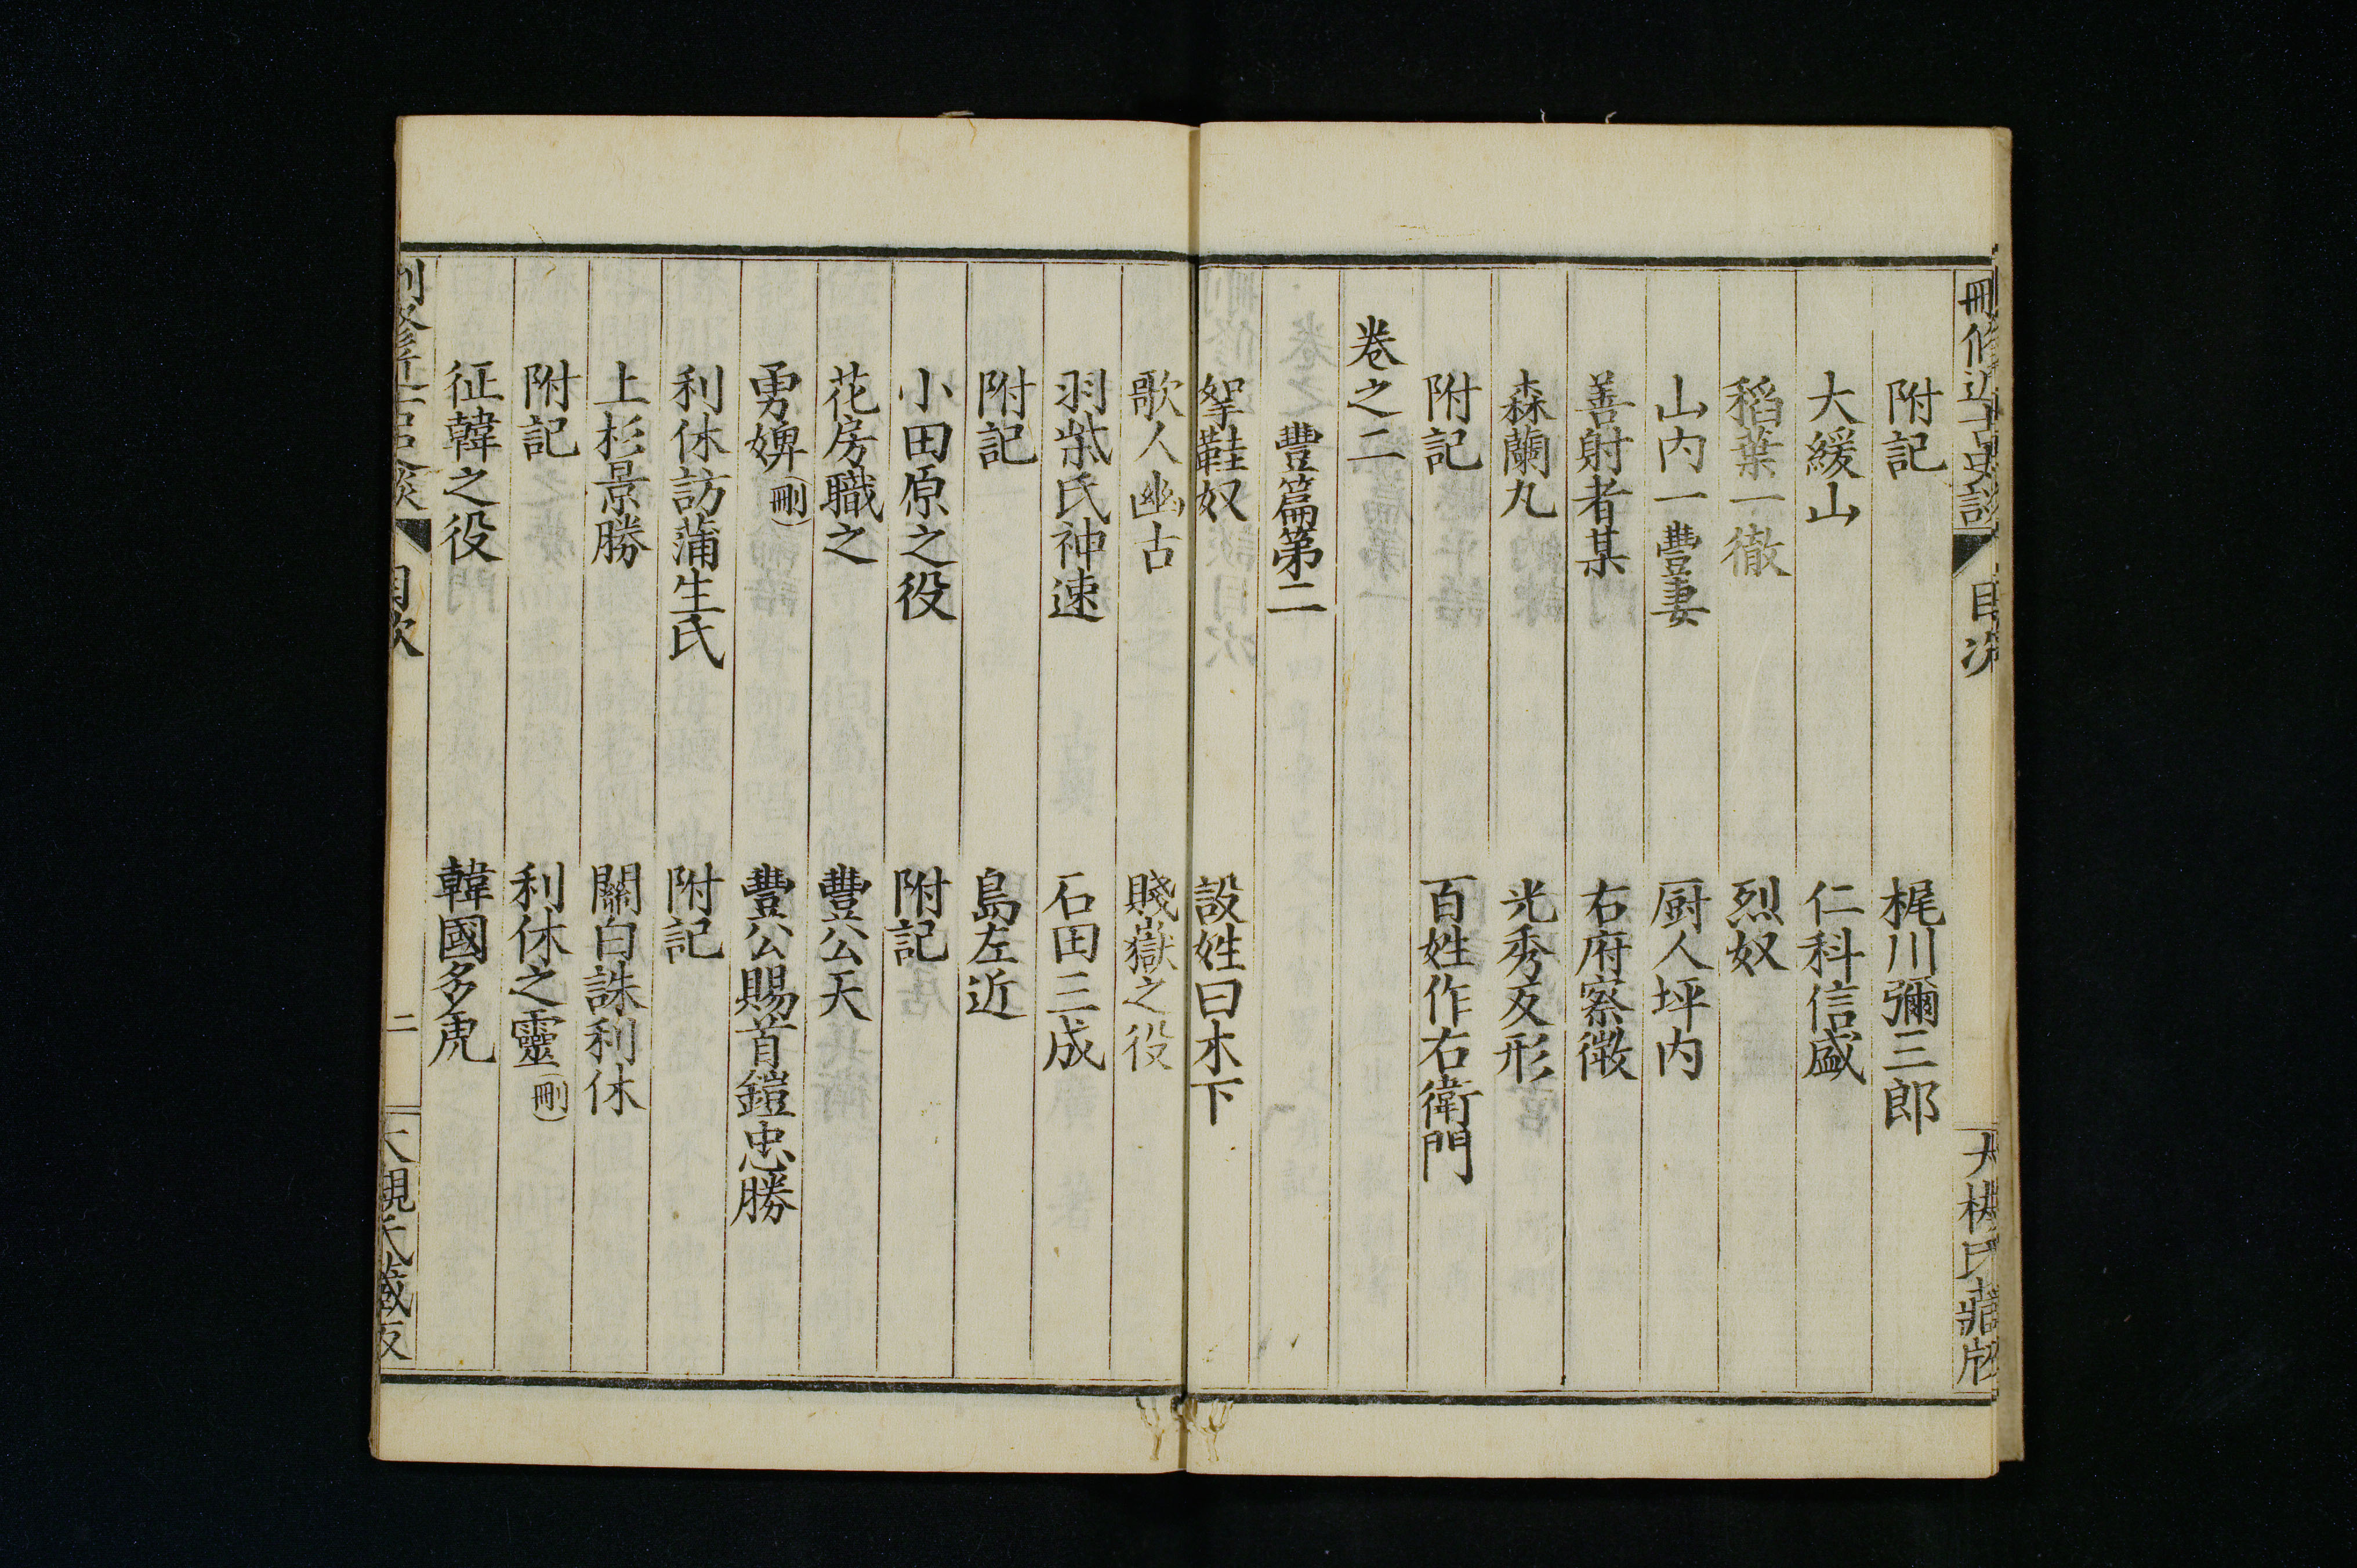 刪修近古史談 目次 大槻氏藏版
附記 梶川彌三郎
大緩山 仁科信盛
稻葉一徹 烈奴
山内一豐妻 厨人坪内
善射者某 右府察微
森蘭丸 光秀反形
附記 百姓作右衛門
卷之二
豐篇第二
拏鞋奴 設姓曰木下
歌人幽古 賤嶽之役
羽柴氏神速 石田三成
附記 島左近
小田原之役 附記
花房職之 豐公天
勇婢(刪) 豐公賜首鎧忠勝
利休訪蒲生氏 附記
上杉景勝 關白誅利休
附記 利休之靈(刪)
征韓之役 韓國多虎
刪修近古史談 目次 二 大槻氏藏版